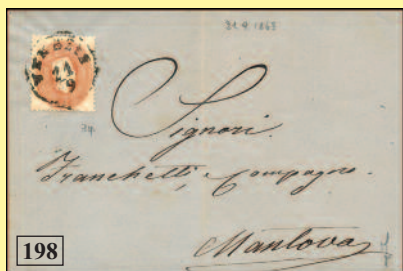 31.9.1863
VENEZIA
21
9
Signori
Franchetti e Compagno
Mantova
198